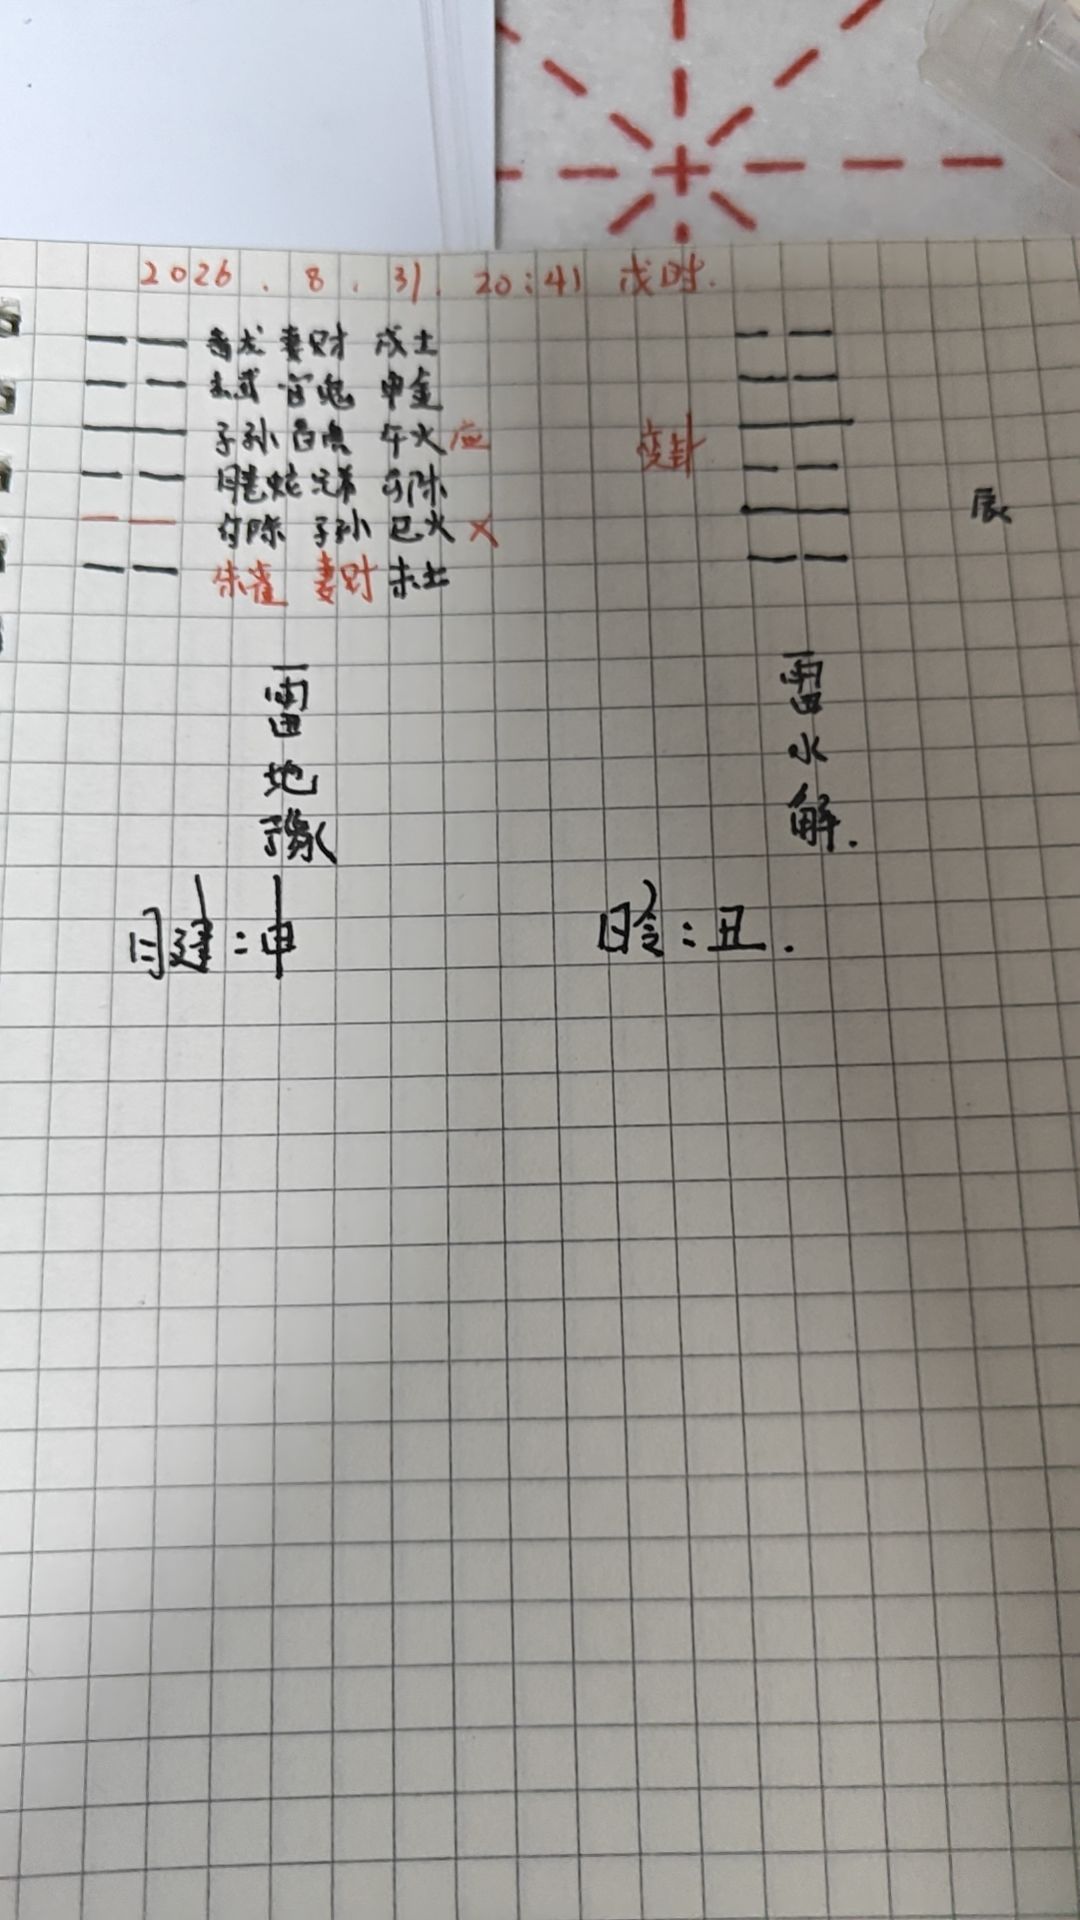 2026.8.31.20:41 戌时.
青龙 妻财 戌土
玄武 官鬼 申金
子孙 白虎 午火 应
螣蛇 兄弟
勾陈 子孙 巳火 X
朱雀 妻财 未土
变卦
辰
雷地豫
雷水解.
月建:申
日令:丑.